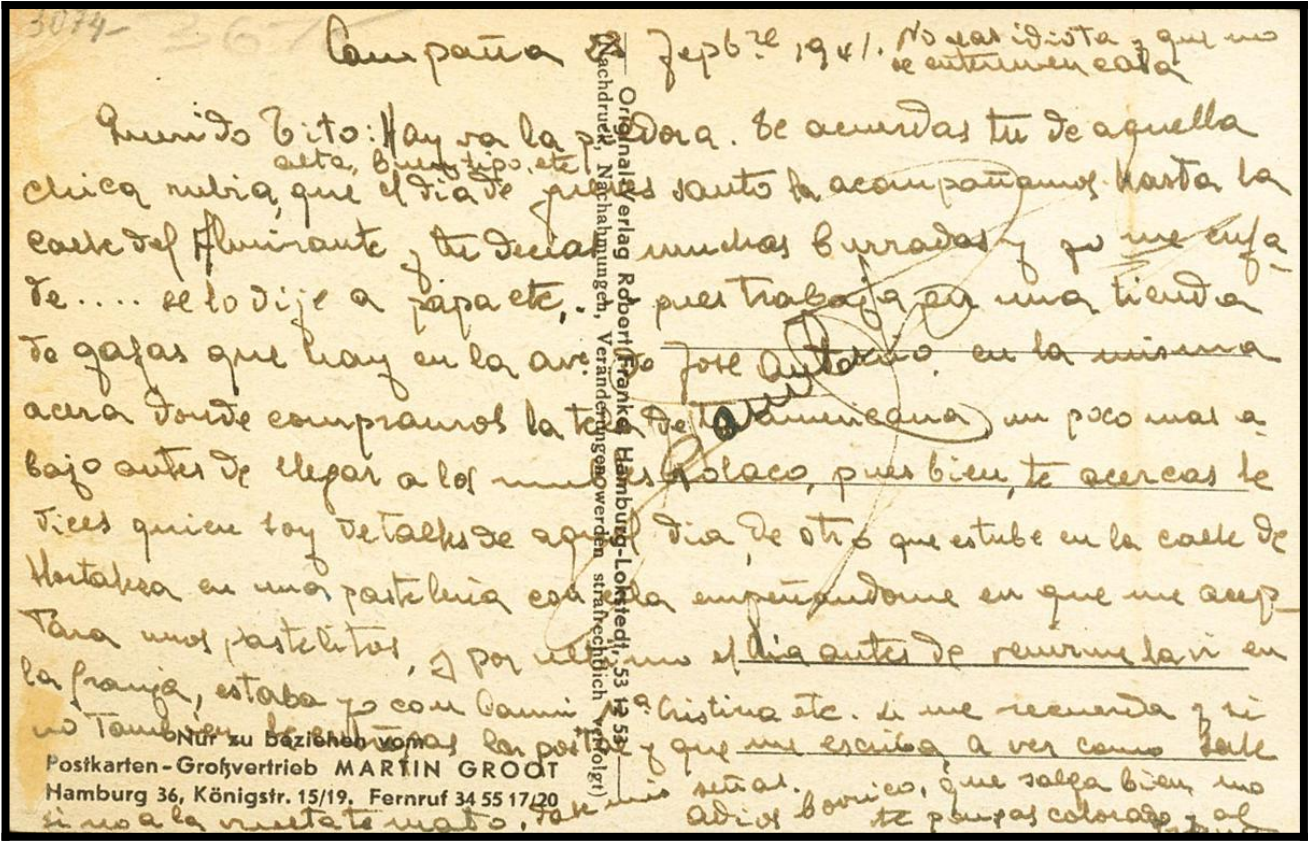 3074-
Campaña Sepbre 1941. No seas idiota y que no
se enteren en casa
Querido Tito: Hay va la p dora. Te acuerdas tu de aquella
alta, buen tipo, etc
chica rubia, que el dia de jueves santo la acompañamos hasta la
calle del Almirante y tu decias muchas burradas y yo me enfa-
de.... se lo dije a papa etc, pues trabaja en una tienda
de gafas que hay en la avda Jose Antonio en la misma
acera donde compramos la tela de tu americana, un poco mas a-
bajo antes de llegar a los muebles Rolaco, pues bien, te acercas le
dices quien soy detalles de aquel dia, de otro que estube en la calle de
Hortaleza en una pasteleria con ella empeñandome en que me acep-
tara unos pastelitos, y por ultimo el dia antes de venirme la vi en
la granja, estaba yo con Mª Cristina etc. si me recuerda y si
no tambien le entregas la postal y que me escriba a ver como sale
dale mis señas.
si no a la vuelta te mato. adios borrico, que salga bien no
te pongas colorado y al
Original-Verlag Robert Franke, Hamburg-Lokstedt, 53 12 53
(Nachdruck, Nachahmungen, Veränderungen werden strafrechtlich verfolgt)
Nur zu beziehen vom
Postkarten-Großvertrieb MARTIN GROOT
Hamburg 36, Königstr. 15/19. Fernruf 34 55 17/20